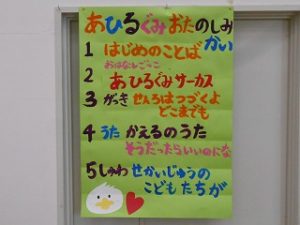 あひるぐみおたのしみ
かい
1 はじめのことば
おはなしごっこ
2 あひるぐみサーカス
3 がっき せんろはつづくよ
どこまでも
4 うた かえるのうた
そうだったらいいのにな
5 しゅわ せかいじゅうの
こどもたちが